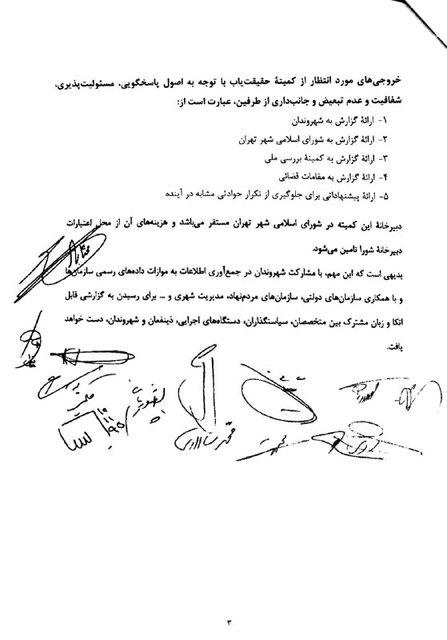 خروجی‌های مورد انتظار از کمیتهٔ حقیقت‌یاب با توجه به اصول پاسخگویی، مسئولیت‌پذیری،
شفافیت و عدم تبعیض و جانب‌داری از طرفین، عبارت است از:
۱- ارائهٔ گزارش به شهروندان
۲- ارائهٔ گزارش به شورای اسلامی شهر تهران
۳- ارائهٔ گزارش به کمیتهٔ بررسی ملی
۴- ارائهٔ گزارش به مقامات قضائی
۵- ارائهٔ پیشنهاداتی برای جلوگیری از تکرار حوادثی مشابه در آینده
دبیرخانهٔ این کمیته در شورای اسلامی شهر تهران مستقر می‌باشد و هزینه‌های آن از محل اعتبارات
دبیرخانهٔ شورا تامین می‌شود.
بدیهی است که این مهم، با مشارکت شهروندان در جمع‌آوری اطلاعات به موازات داده‌های رسمی سازمان‌ها
و با همکاری سازمان‌های دولتی، سازمان‌های مردم‌نهاد، مدیریت شهری و ... برای رسیدن به گزارشی قابل
اتکا و زبان مشترک بین متخصصان، سیاستگذاران، دستگاه‌های اجرایی، ذینفعان و شهروندان، دست خواهد
یافت.
۳